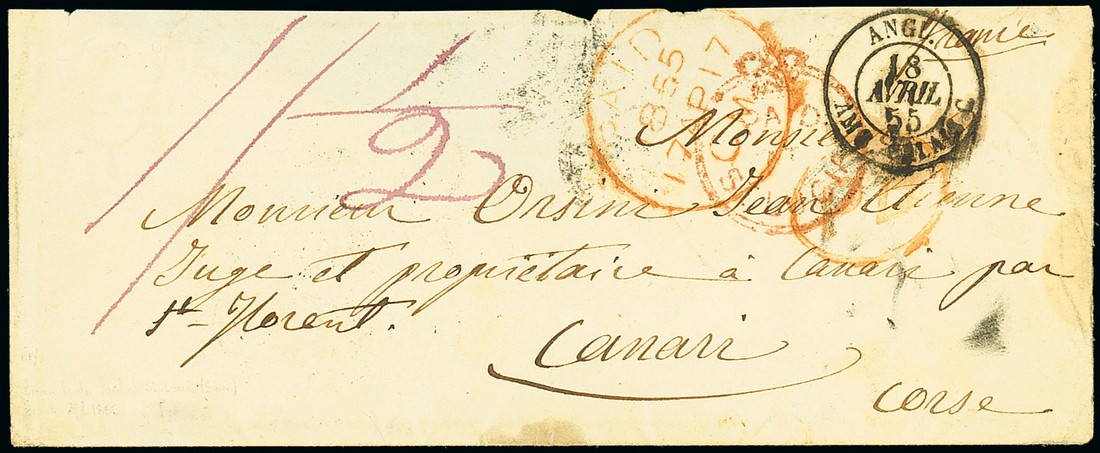 1/2
PAID
1855
17 AP 17
ANGL.
18
AVRIL
55
France
Monsieur
Monsieur Orsini Jean Etienne
Juge et propriétaire à Canari par
St-Florent.
Canari
Corse